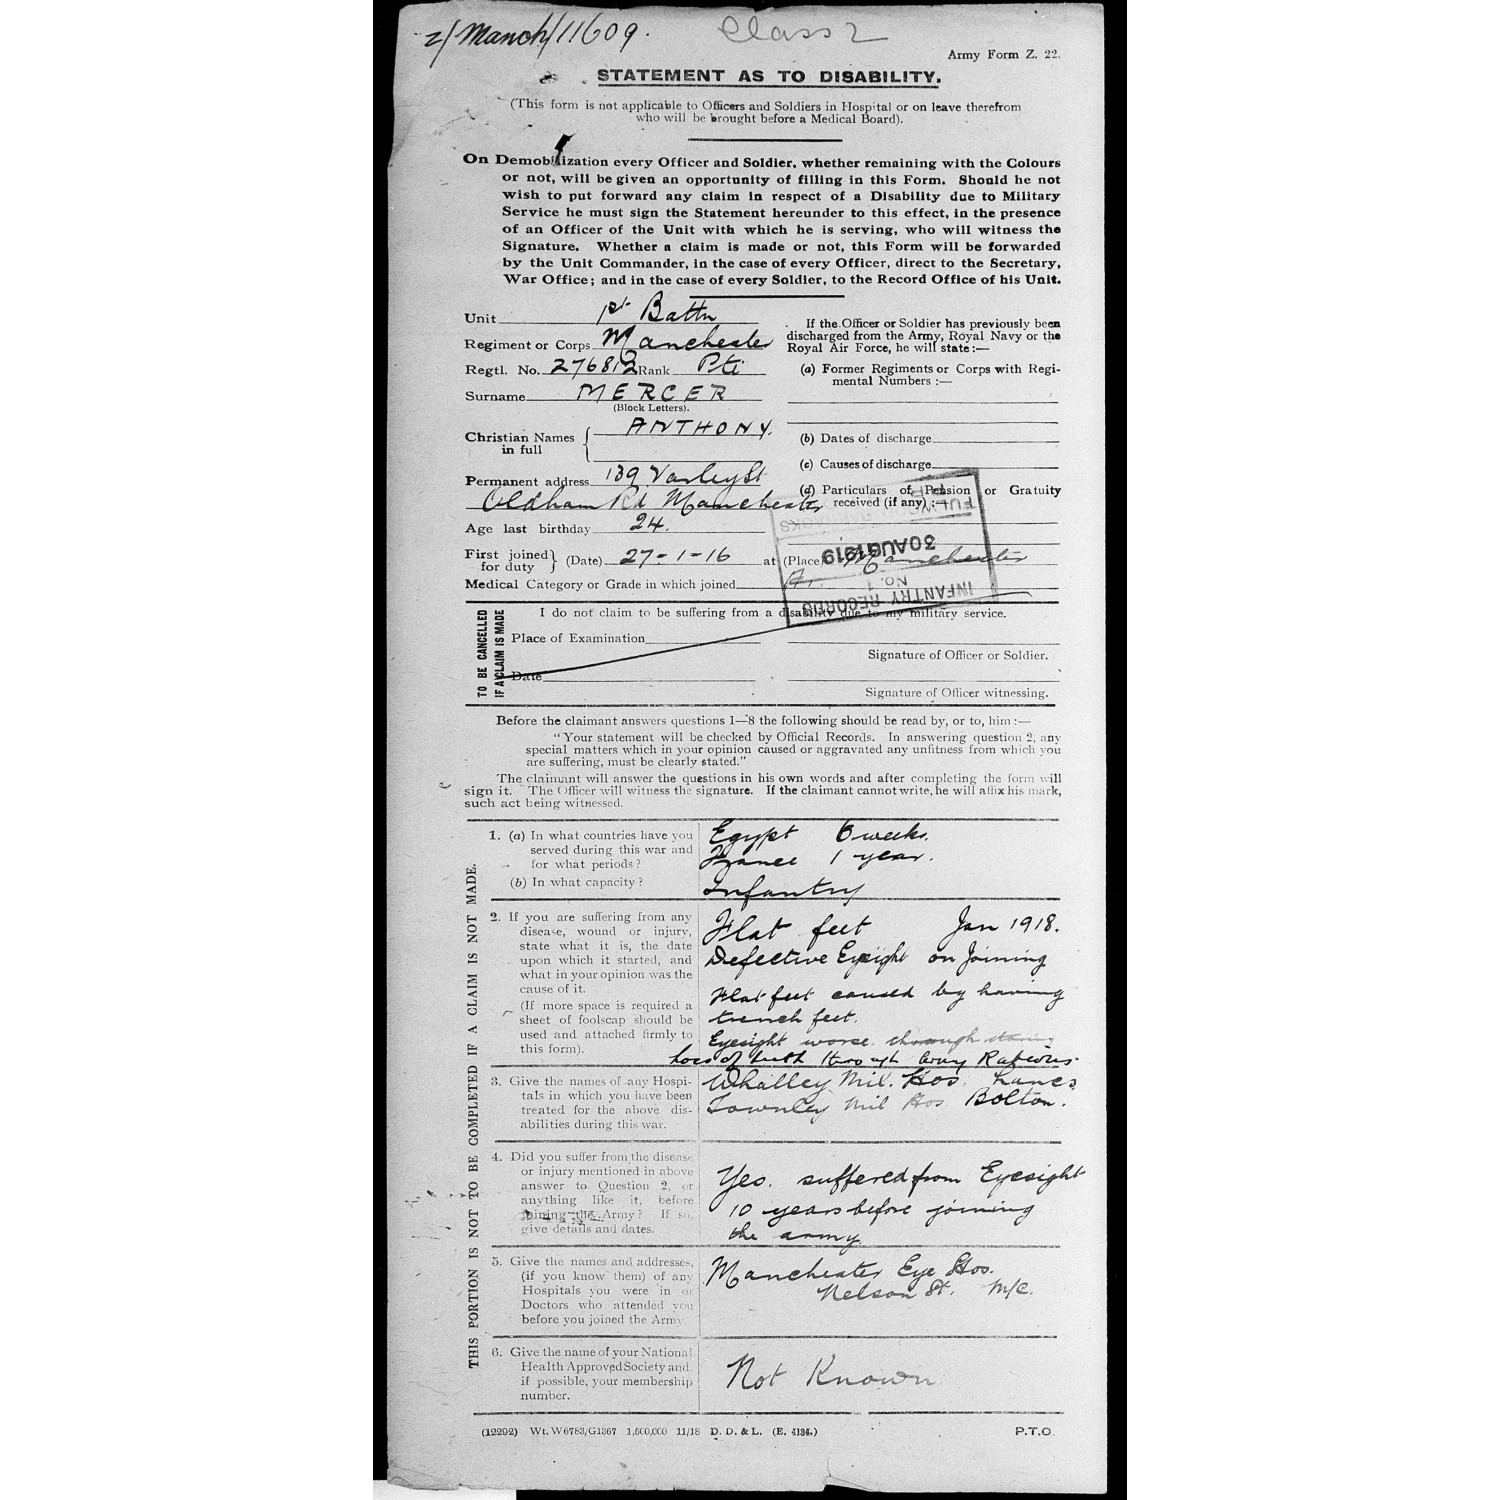 z/Manch/11609.
Class 2
Army Form Z. 22.
STATEMENT AS TO DISABILITY.
(This form is not applicable to Officers and Soldiers in Hospital or on leave therefrom
who will be brought before a Medical Board).
On Demobilization every Officer and Soldier, whether remaining with the Colours
or not, will be given an opportunity of filling in this Form. Should he not
wish to put forward any claim in respect of a Disability due to Military
Service he must sign the Statement hereunder to this effect, in the presence
of an Officer of the Unit with which he is serving, who will witness the
Signature. Whether a claim is made or not, this Form will be forwarded
by the Unit Commander, in the case of every Officer, direct to the Secretary,
War Office; and in the case of every Soldier, to the Record Office of his Unit.
Unit 1st Battn
Regiment or Corps Manchester
Regtl. No. 276812 Rank Pte
Surname MERCER
(Block Letters).
Christian Names in full ANTHONY.
Permanent address 139 Varley St
Oldham Rd Manchester
Age last birthday 24.
First joined for duty } (Date) 27-1-16 at (Place) Manchester
Medical Category or Grade in which joined A1.
If the Officer or Soldier has previously been
discharged from the Army, Royal Navy or the
Royal Air Force, he will state:—
(a) Former Regiments or Corps with Regi-
mental Numbers :—
(b) Dates of discharge
(c) Causes of discharge
(d) Particulars of Pension or Gratuity
received (if any) :—
30 AUG 1919
INFANTRY RECORDS
No. 1
TO BE CANCELLED
IF A CLAIM IS MADE
I do not claim to be suffering from a disability due to my military service.
Place of Examination
Signature of Officer or Soldier.
Date
Signature of Officer witnessing.
Before the claimant answers questions 1—8 the following should be read by, or to, him :—
"Your statement will be checked by Official Records. In answering question 2, any
special matters which in your opinion caused or aggravated any unfitness from which you
are suffering, must be clearly stated."
The claimant will answer the questions in his own words and after completing the form will
sign it. The Officer will witness the signature. If the claimant cannot write, he will affix his mark,
such act being witnessed.
THIS PORTION IS NOT TO BE COMPLETED IF A CLAIM IS NOT MADE.
1. (a) In what countries have you
served during this war and
for what periods?
(b) In what capacity?
Egypt 6 weeks.
France 1 year.
Infantry
2. If you are suffering from any
disease, wound or injury,
state what it is, the date
upon which it started, and
what in your opinion was the
cause of it.
(If more space is required a
sheet of foolscap should be
used and attached firmly to
this form).
Flat feet Jan 1918.
Defective Eyesight on Joining
Flat feet caused by having
trench feet.
Eyesight worse through
Loss of teeth through Army Rations.
3. Give the names of any Hospi-
tals in which you have been
treated for the above dis-
abilities during this war.
Whalley Mil. Hos. Lancs
Townley Mil Hos Bolton.
4. Did you suffer from the disease
or injury mentioned in above
answer to Question 2, or
anything like it, before
joining the Army? If so,
give details and dates.
Yes. suffered from Eyesight
10 years before joining
the army.
5. Give the names and addresses,
(if you know them) of any
Hospitals you were in or
Doctors who attended you
before you joined the Army
Manchester Eye Hos.
Nelson St. M/C.
6. Give the name of your National
Health Approved Society and
if possible, your membership
number.
Not Known
(12292) Wt. W6783/G1367 1,500,000 11/18 D. D. & L. (E. 4134.)
P.T.O.